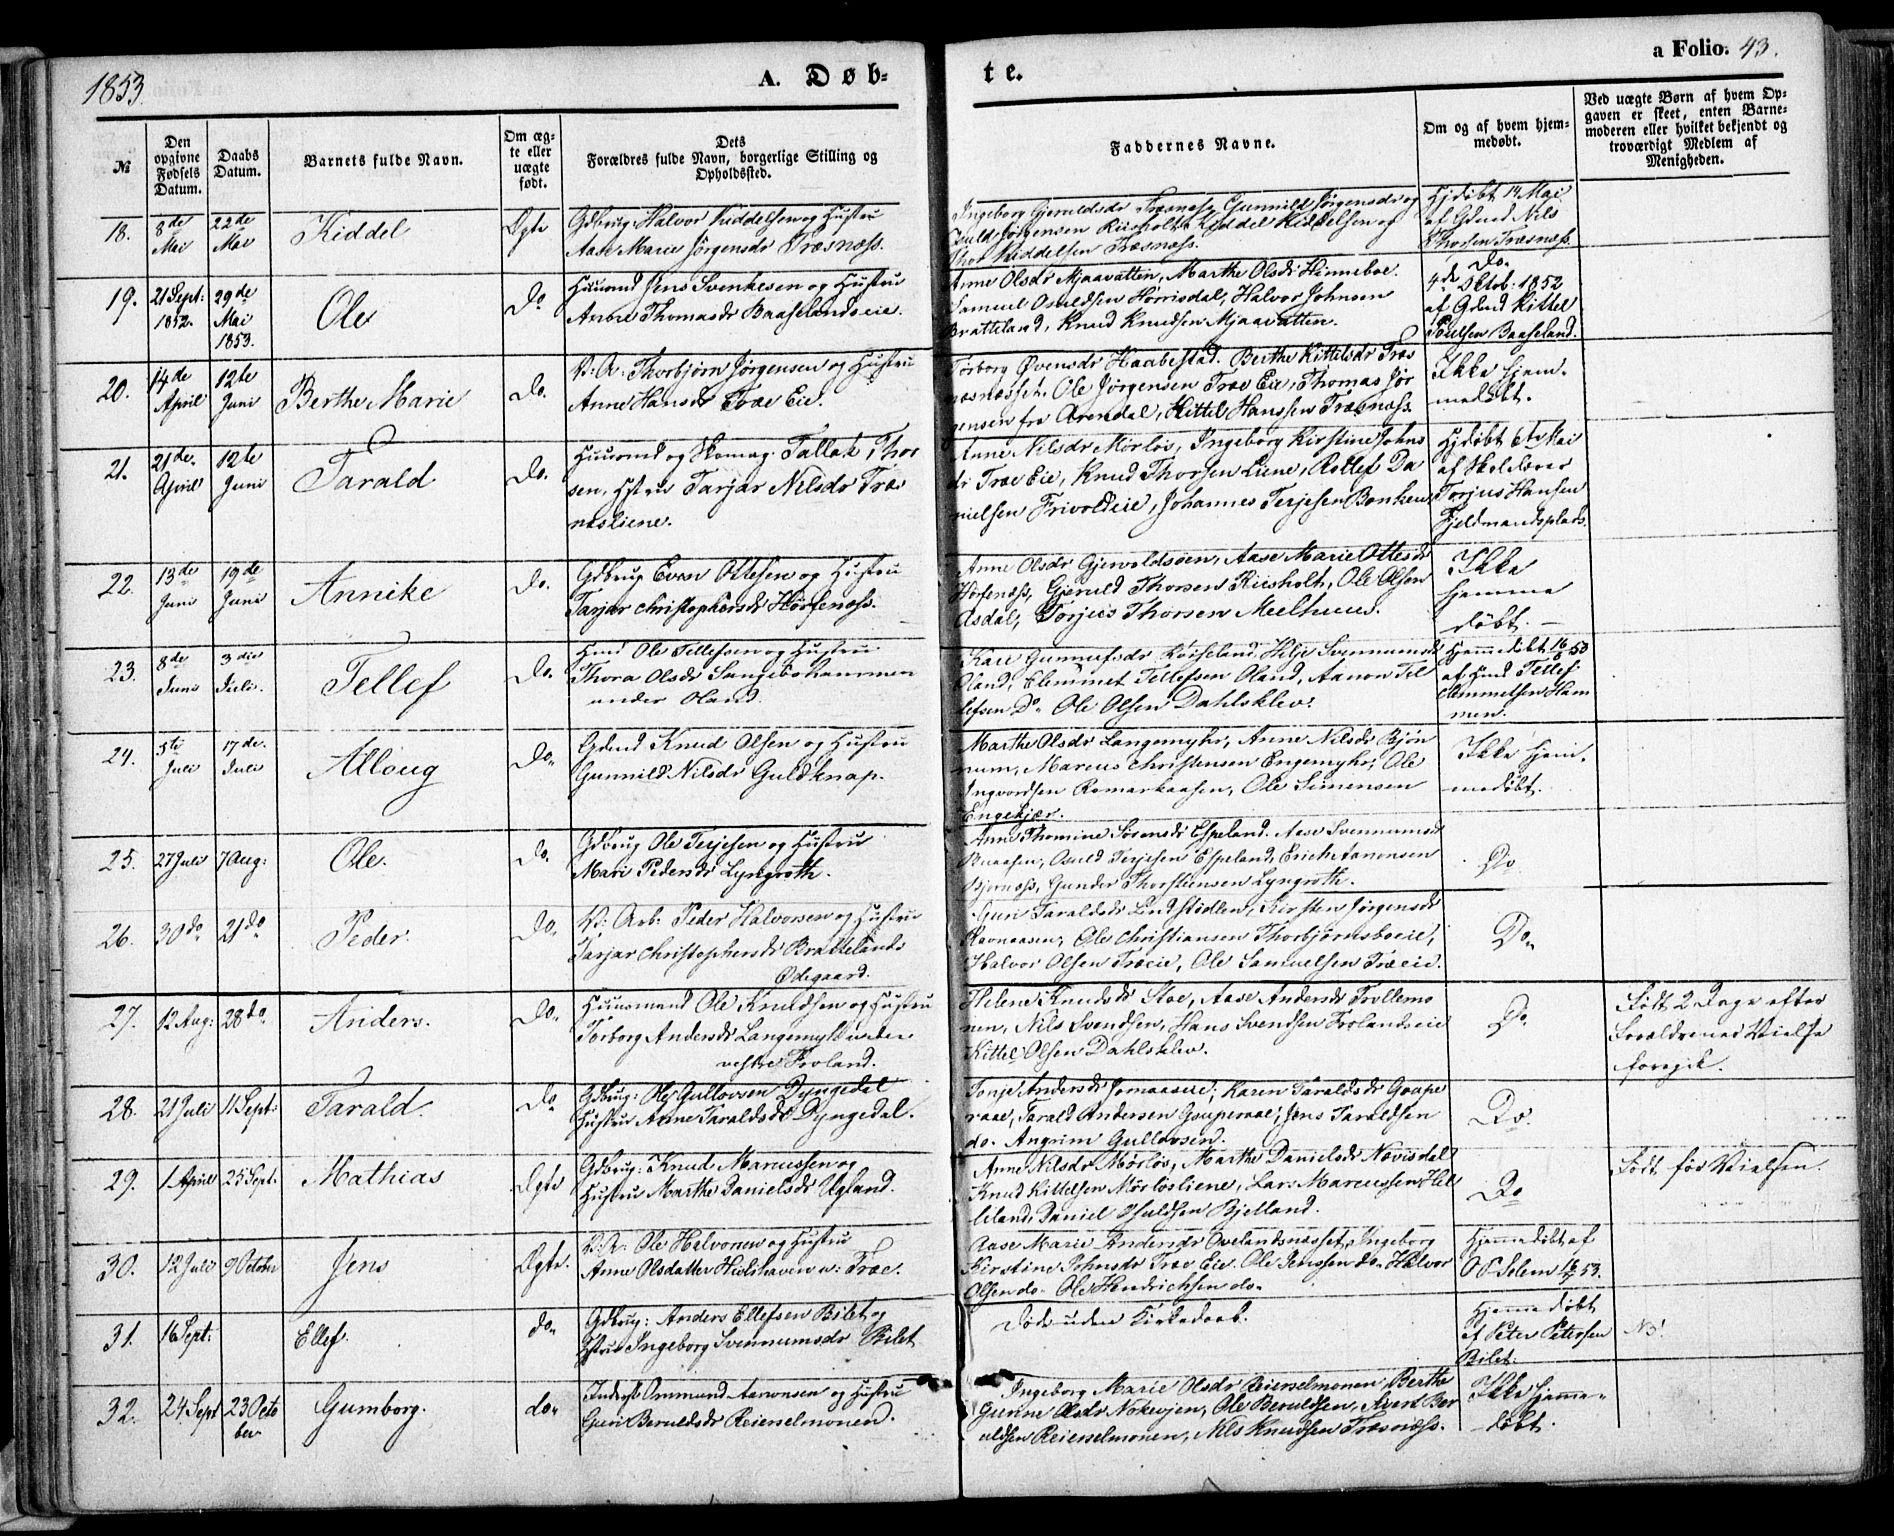 1853.
A. Døb-
te.
a Folio. 43.
№
Den opgivne Fødsels Datum.
Daabs Datum.
Barnets fulde Navn.
Om ægte eller uægte født.
Dets
Forældres fulde Navn, borgerlige Stilling og
Opholdssted.
Faddernes Navne.
Om og af hvem hjemmedøbt.
Ved uægte Børn af hvem Opgaven er skeet, enten Barnemoderen eller hvilket bekjendt og troværdigt Medlem af Menigheden.
18. 8de Mai 22de Mai Kiddel Ægte
Gdbrug. Halvor Kiddelsen og Hustru
Aase Marie Jörgensdr Træsnæss.
Ingeborg Gjeruldsdr Træsnæss, Gunnild Jörgensdr og
Jörgensen Riisholt, Kiddel Kiddelsen og
Thor Kiddelsen Træsnæss.
Hjdöbt 14 Mai
af Gdmd Nils
Thorsen Træsnæss
19. 21 Sept: 1852. 29de Mai 1853. Ole Do
Huusmd Jens Svenkesen og Hustru
Anne Thomasdr Baaselandseie.
Anne Olsdr Mjaavatten, Marthe Olsdr Hinneboe.
Samuel Osuldsen Hörrisdal, Halvor Johnsen
Bratteland, Knud Knudsen Mjaavatten.
Do.
4de Oktob: 1852
af Gdmd Kittel
Poulsen Baaseland.
20. 14de April 12te Juni Berthe Marie Do.
V: A: Thorbjørn Jörgensen og Hustru
Anne Hansdr Træe Eie.
Torborg Övensdr Haabestad. Berthe Kittilsdr Træs
næsset. Ole Jörgensen Træe Eie, Thomas Jör
gensen fra Arendal, Kittel Hanssen Træsnæss.
Ikke hjem-
medöbt.
21. 21de April 12te Juni Tarald Do.
Huusmd og Skomag. Tallak Thor
sen, Hstru Tarjer Nilsdr Træs
næsliene.
Anne Nilsdr Mörlös, Ingeborg Kirstine Johns
dr Træe Eie, Knud Thorsen Liene, Rollef Da
nielsen Frivoldeie, Johannes Terjesen Bonken
Hjdöbt 6te Mai
af Skolelærer
Torjus Hansen
Fjeldmandsplads.
22. 13de Juni 19de Juni Annike Do.
Gdbrug Even Ottesen og Hustru
Tarjer Christophersdr Hörsenæss.
Anne Olsdr Gjervoldsöen, Aase Marie Ottesdr
Hörsenæss, Gjeruld Thorsen Riisholt, Ole Olsen
Asdal, Torjus Thorsen Meelhuus.
Ikke
hjemme
döbt.
23. 8de Juni 3die Juli. Tellef Do.
Hmd Ole Tellefsen og Hustru
Thora Olsdr Sangeböhammen
under Oland.
Kari Gunnufsdr Röiseland, Helje Svennumsdr
Oland, Clemmet Tellefsen Oland, Aanon Tel
lefsen Do. Ole Olsen Dahlsklev.
Hjemmedöbt 16/6 53
af Hmd Tellef
Ammelsen Ham
men.
24. 5te Juli 17de Juli Alloug Do.
Gdmd Knud Olsen og Hustru
Gunnild Nilsdr Guldknap.
Marthe Olsdr Langemyhr, Anne Nilsdr Bjön
num, Marcus Christensen Engemyhr, Ole
Ingvordsen Romarkaasen, Ole Simensen
Engekjær.
Ikke hjem-
medöbt.
25. 27 Juli 7 Aug: Ole. Do.
Gdbrug Ole Terjesen og Hustru
Mari Pedersdr Lyngroth.
Anne Thomine Sörensdr Espeland. Aase Svennumsdr
Buaasen, Osuld Terjesen Espeland, Erich Aanonsen
Bjornæss, Gunder Thorstiensen Lyngroth.
Do
26. 30do 21do Peder. Do.
V: Arb: Peder Halvorsen og Hustru
Tarjer Christophersdr Brattelands
Ödegaard.
Guri Taraldsdr Lindstödlen, Kirsten Jörgensdr
Ravnaasen, Ole Christiansen Thorbjörnsboeie,
Halvor Olsen Træeie, Ole Samuelsen Træeie.
Do.
27. 12 Aug: 28do Anders. Do.
Huusmand Ole Knudsen og Hustru
Torborg Andersdr Langemyhr under
vestre Froland.
Helene Knudsdr Stoe, Aase Andersdr Trollemo
nen, Nils Svendsen, Hans Svendsen Frolandseie
Kittel Olsen Dahlsklev.
Do
Födt 2 Dage efter
Forældrenes Vielse
foregik.
28. 21 Juli 11 Sept: Tarald. Do
Gdbrug: Ole Gullovsen Dyngedal
Hustru Anne Taraldsdr Dyngedal.
Tonje Andersdr Jomaaseie, Karen Taraldsdr Goape
raae, Tarald Andersen Gouperaae, Jens Taraldsen
do. Angrim Gullovsen.
Do.
29. 1 April 25 Sept. Mathias Ægte
Gdbrug: Knud Marcussen og
Hustru Marthe Danielsdr Ugland.
Anne Nilsdr Mörlös, Marthe Danielsdr Nævisdal
Knud Kittelsen Mörlösliene, Lars Marcussen Hel
leland, Daniel Osuldsen Bjelland.
Do
Födt för Vielsen.
30. 12 Juli 9 October Jens Ægte.
V: A: Ole Halvorsen og Hustru
Anne Olsdatter Hislehaven u: Træe.
Aase Marie Andersdr Ovelandsnæsset, Ingeborg
Kirstine Johnsdr Træe Eie. Ole Jenssen do. Halvor
Olsen do. Ole Hendrichsen do.
Hjemmedöbt af
O P Selem 18/7 53.
31. 16 Sept: Ellef. do.
Gdbrug: Anders Ellefsen Bilet og
Hstru Ingeborg Svennumsdr Bilet
Döde uden Kirkedaab.
Hjemmedöbt
af Peter Petersen
Bilet.
No!
32. 24 Sept 23 October Gumborg. do.
Inderst Ommund Aanonsen og Hustru
Guri Beruldsdr Reierselmonen.
Ingeborg Marie Olsdr Reierselmonen, Berthe
Gurine Olsdr Nokevjen, Ole Beruldsen, Avert Ber
uldsen Reierselmonen, Nils Knudsen Træsnæss.
Ikke hjemme-
döbt.